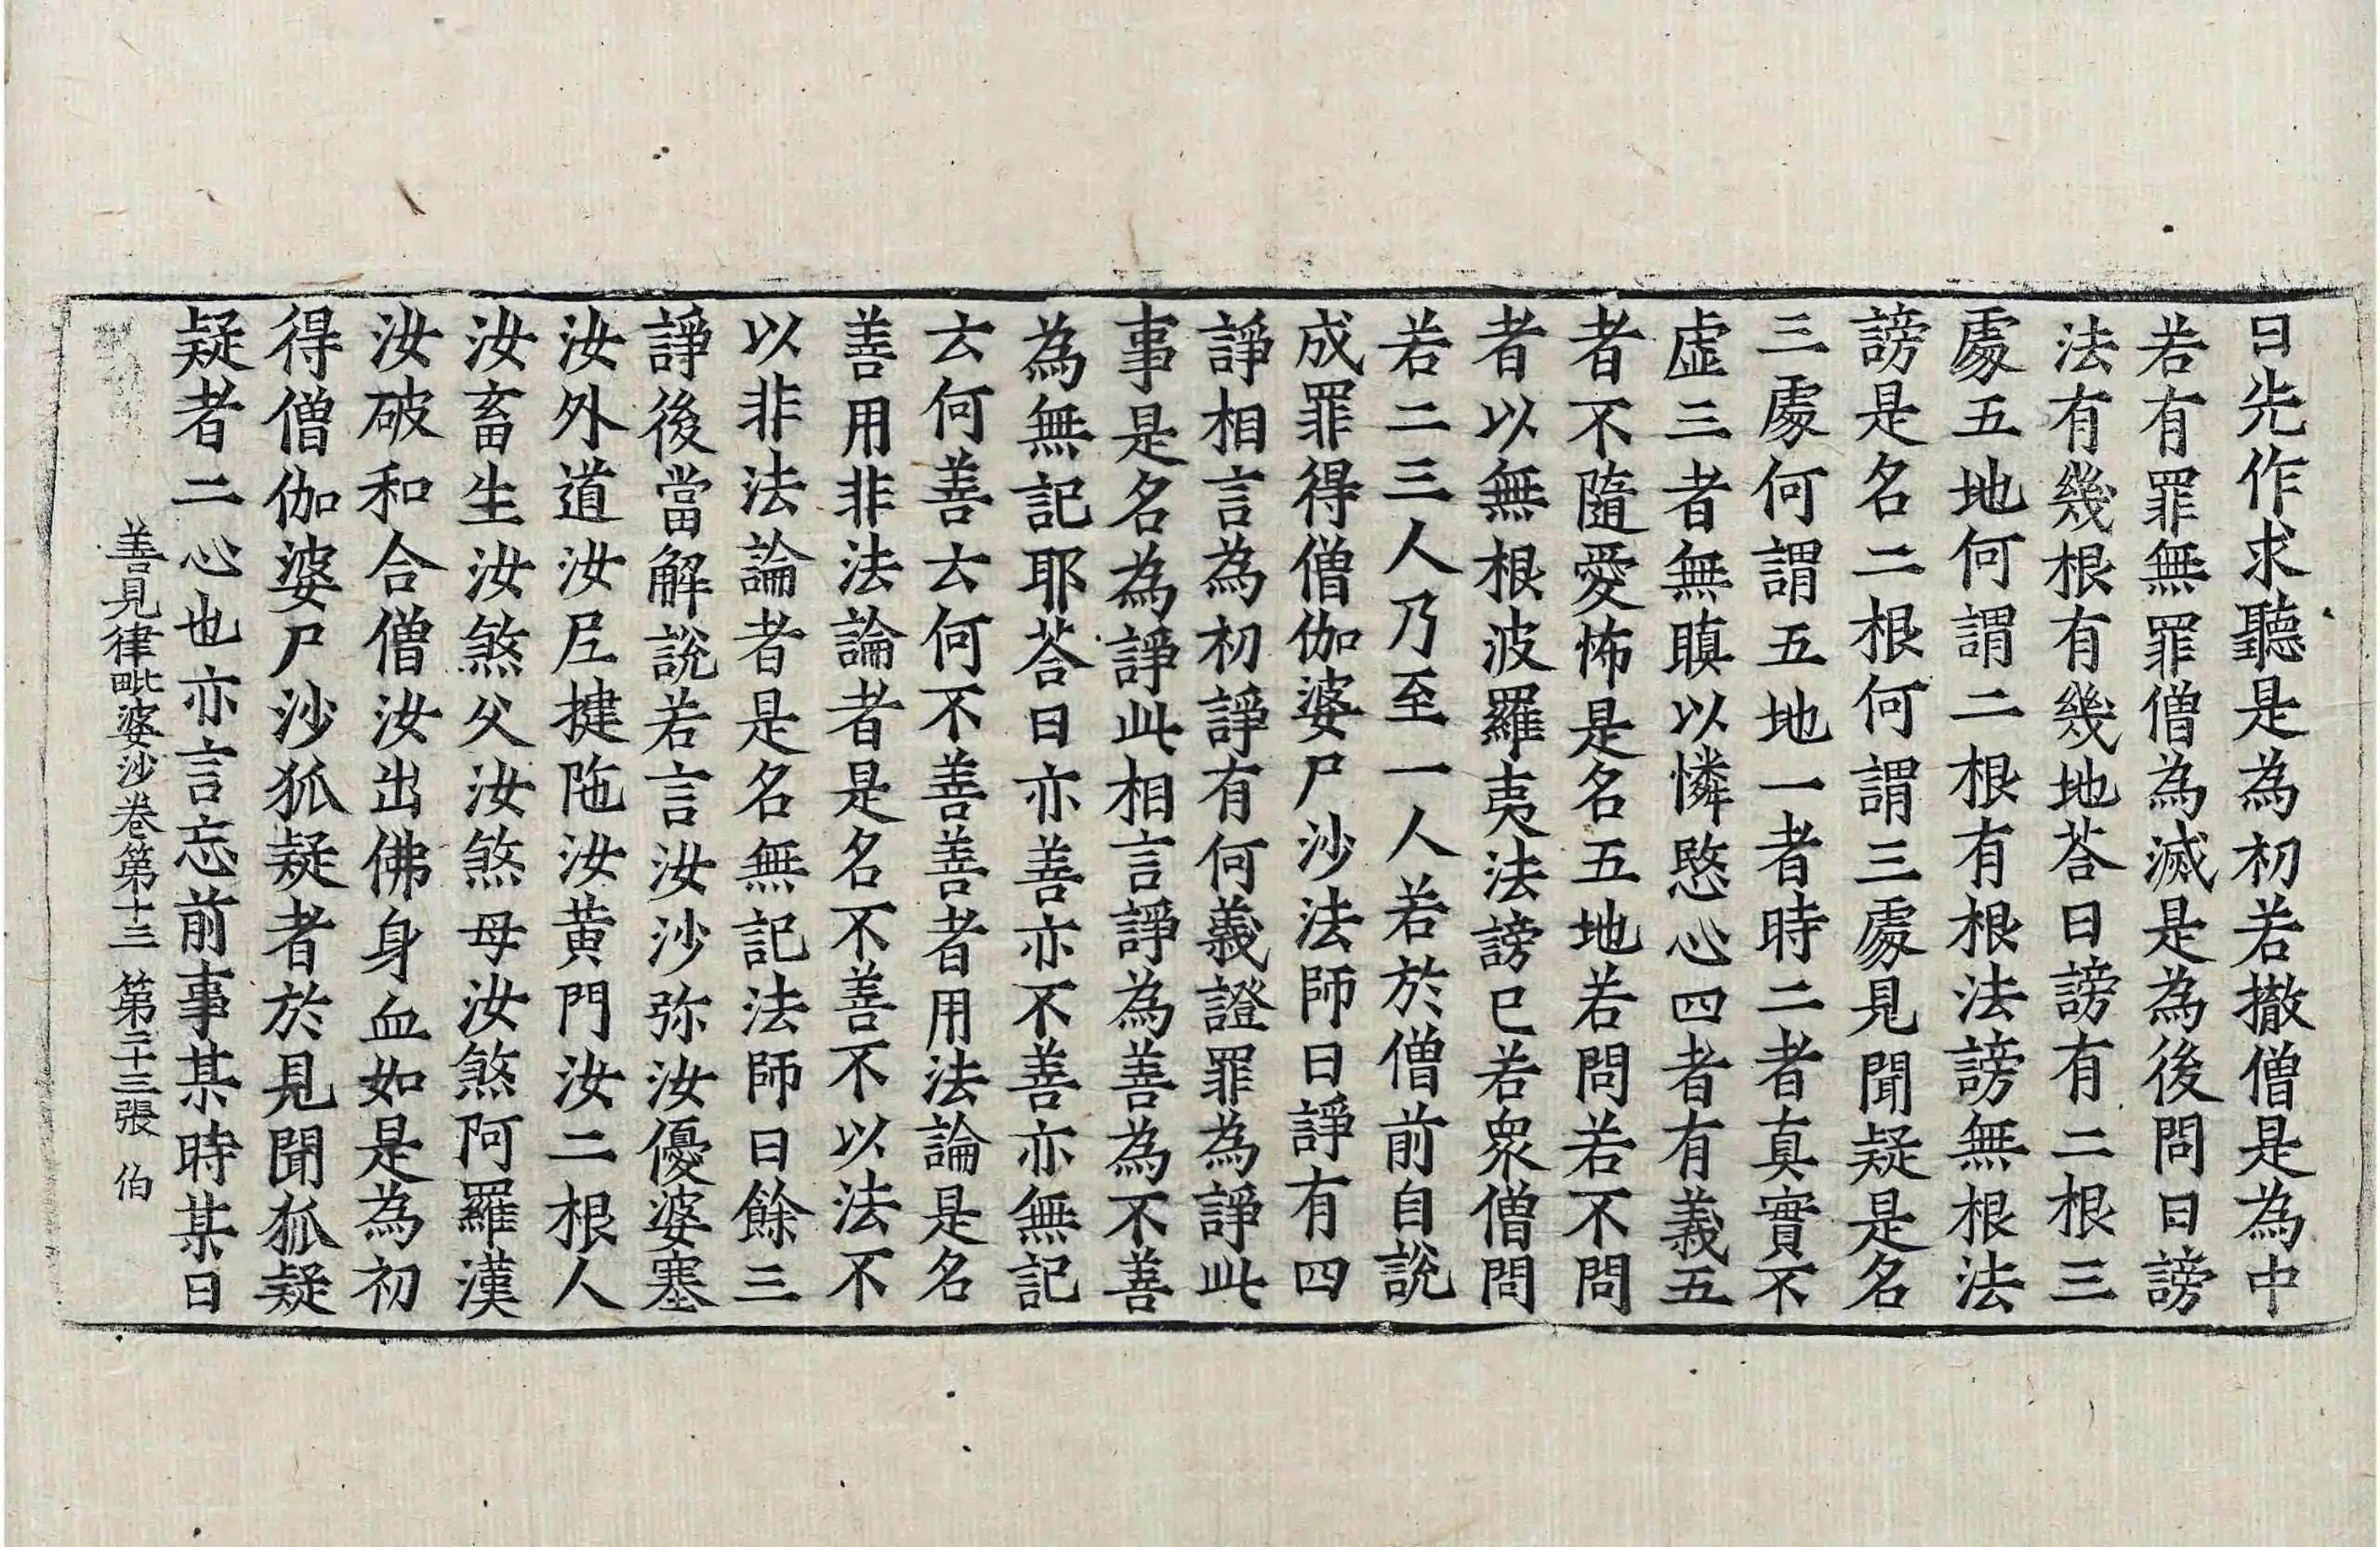 曰先作求聽是為初若撤僧是為中
若有罪無罪僧為滅是為後問曰謗
法有幾根有幾地荅曰謗有二根三
處五地何謂二根有根法謗無根法
謗是名二根何謂三處見聞疑是名
三處何謂五地一者時二者真實不
虛三者無瞋以憐愍心四者有義五
者不隨愛怖是名五地若問若不問
者以無根波羅夷法謗已若衆僧問
若二三人乃至一人若於僧前自說
成罪得僧伽婆尸沙法師曰諍有四
諍相言為初諍有何義證罪為諍此
事是名為諍此相言諍為善為不善
為無記耶荅曰亦善亦不善亦無記
云何善云何不善善者用法論是名
善用非法論者是名不善不以法不
以非法論者是名無記法師曰餘三
諍後當解說若言汝沙弥汝優婆塞
汝外道汝尼揵陁汝黄門汝二根人
汝畜生汝煞父汝煞母汝煞阿羅漢
汝破和合僧汝出佛身血如是為初
得僧伽婆尸沙狐疑者於見聞狐疑
疑者二心也亦言忘前事某時某日
善見律毗婆沙卷第十三 第二十三張 伯